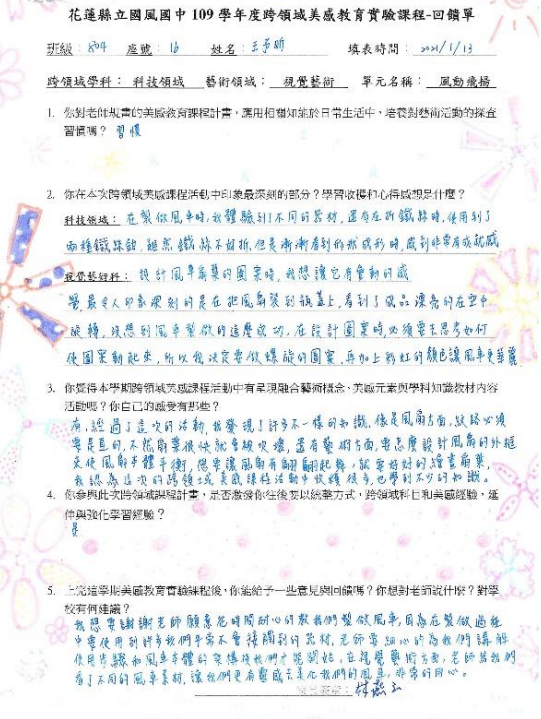 花蓮縣立國風國中 109 學年度跨領域美感教育實驗課程-回饋單
班級：804 座號：16 姓名：王 填表時間：2021/1/13
跨領域學科：科技領域 藝術領域：視覺藝術 單元名稱：風動飛揚
1. 你對老師規畫的美感教育課程計畫，應用相關知能於日常生活中，培養對藝術活動的探查
習慣嗎？ 習慣
2. 你在本次跨領域美感課程活動中印象最深刻的部分？學習收穫和心得感想是什麼？
科技領域：在製做風車時，我體驗到了不同的器材，還有在折鐵絲時，使用到了
兩種鐵絲鉗，雖然鐵絲不好折，但是漸漸看到的形成形時，感到非常有成就感
視覺藝術科：設計風車扇葉的圖案時，我想讓它有會動的感
覺，最令人印象深刻的是在把風扇裝到瓶蓋上，看到了成品漂亮的在空中
旋轉，沒想到風車製做的這麼成功，在設計圖案時，必須要去思考如何
使圖案動起來，所以我決定要做螺旋的圖案，再加上粉紅的顏色讓風車更華麗
3. 你覺得本學期跨領域美感課程活動中有呈現融合藝術概念、美感元素與學科知識教材內容
活動嗎？你自己的感受有那些？
有，經過了這次的活動，我發現了許多不一樣的知識，像是風扇方面，紋路必須
要是直的，不然扇葉很快就會被吹壞，還有藝術方面，要怎麼設計風扇的外框
來使風扇半體平衡，想要讓風扇有翩翩起舞，就要好好的繪畫扇葉，
我認為這次的跨領域美感課程活動中收穫很多，也學到不少的知識。
4. 你參與此次跨領域課程計畫，是否激發你往後要以統整方式，跨領域科目和美感經驗，延
伸與強化學習經驗？
是
5. 上完這學期美感教育實驗課程後，你能給予一些意見與回饋嗎？你想對老師說什麼？對學
校有何建議？
我想要謝謝老師願意花時間耐心的教我們製做風車，因為在製做過程
中要使用到許多我們平常不會接觸到的器材，老師會細心的為我們講解
使用步驟和風車半體的架構後我們才能開始，在視覺藝術方面，老師給我們
看了不同的風車素材，讓我們更有靈感去美化我們的風車，非常的用心。